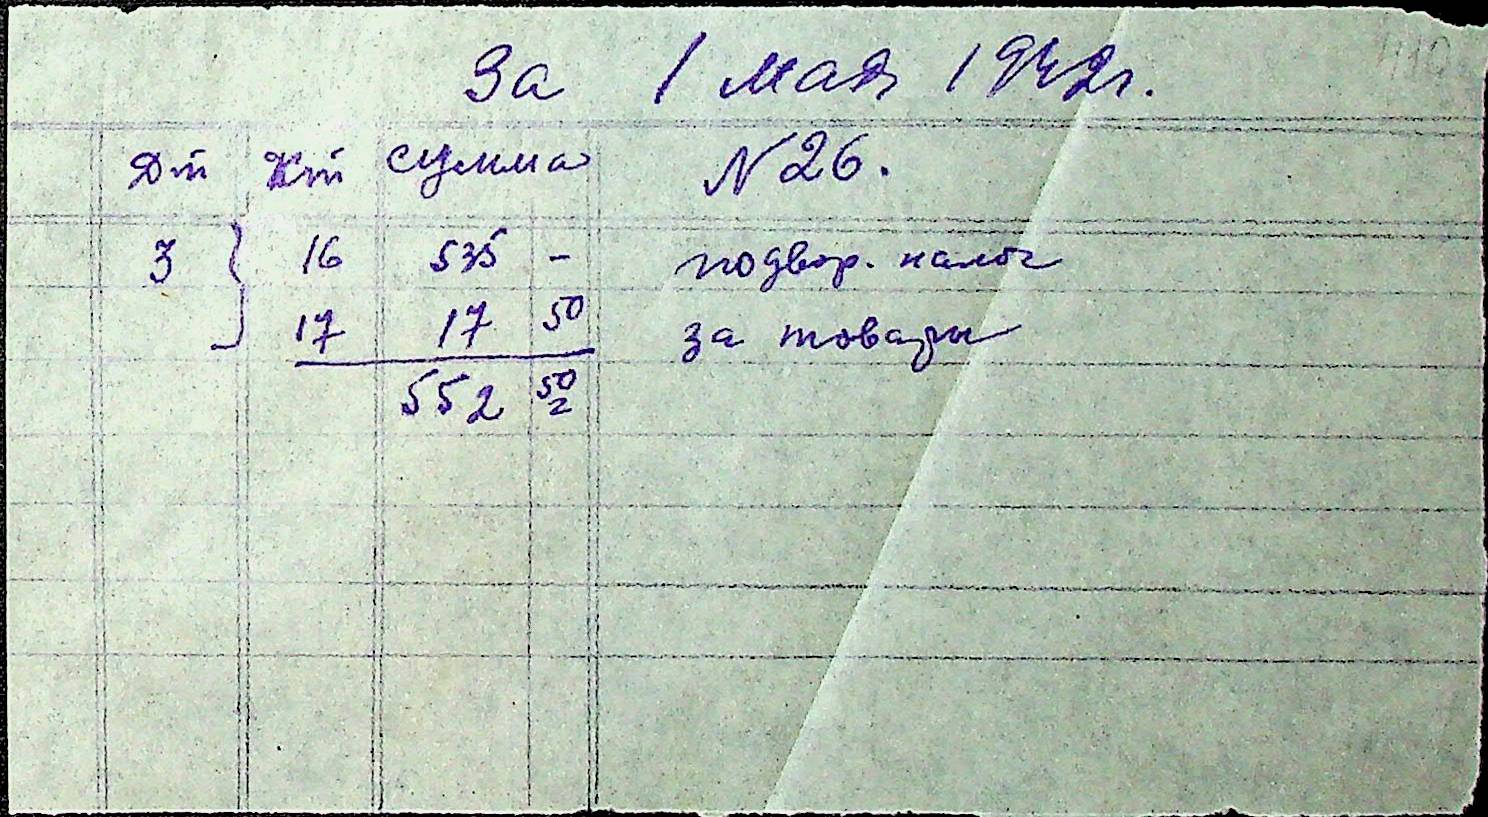 410
За 1 мая 1942г.
Дт Кт сумма N 26.
3 } 16 535 - подвор. налог
17 17 50 за товары
552 50
2